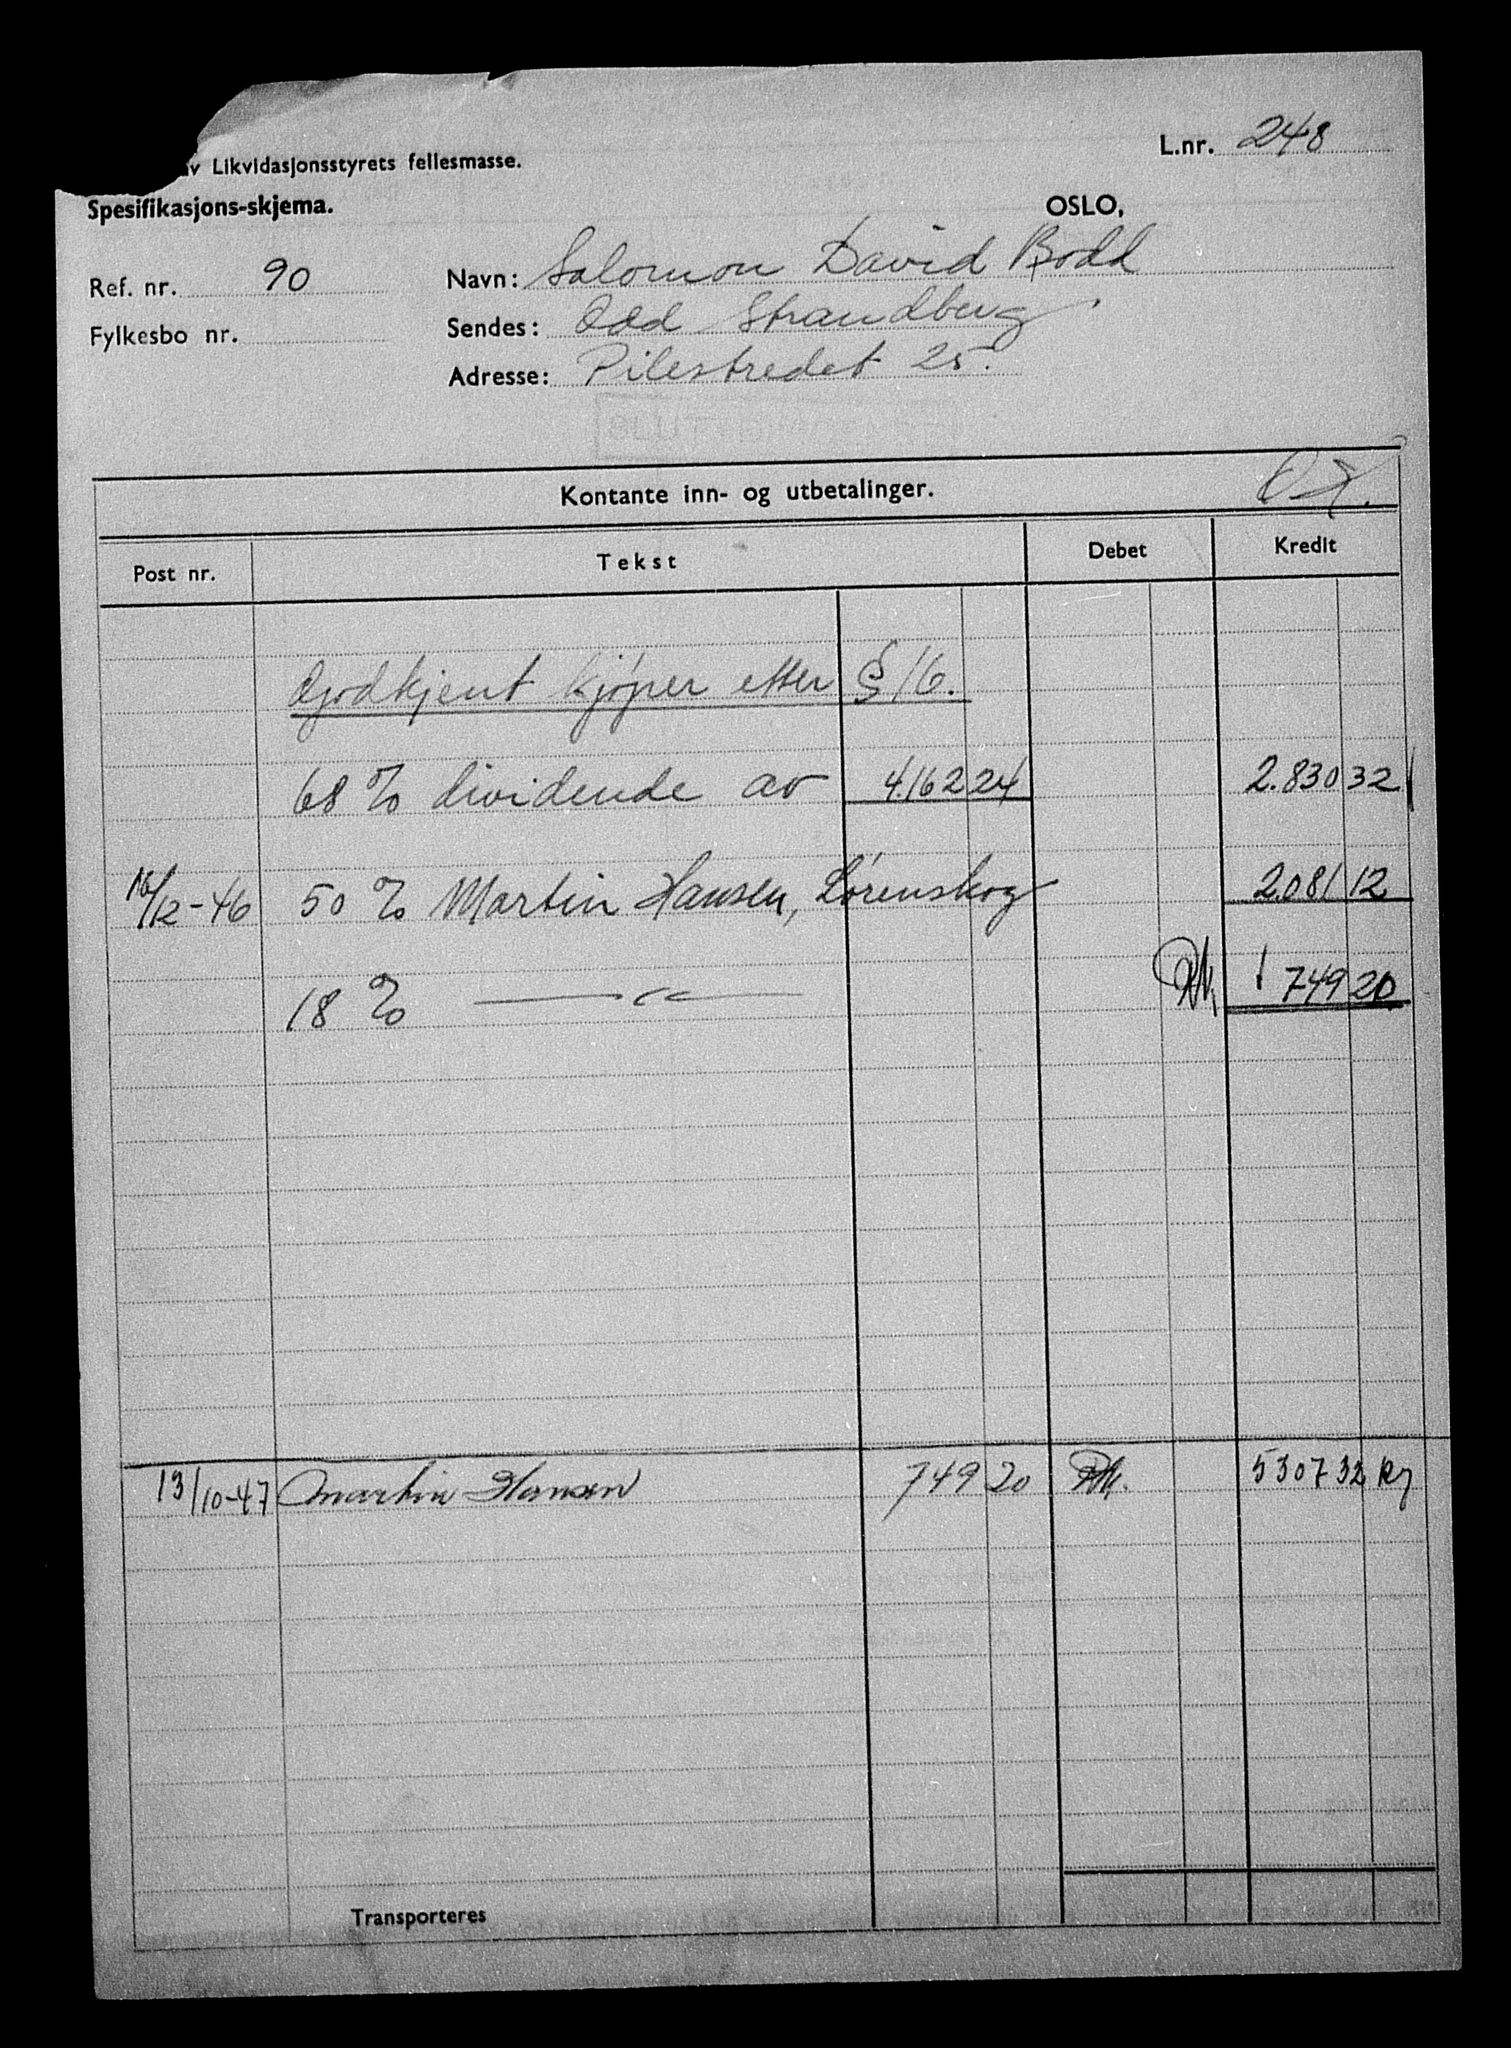 av Likvidasjonsstyrets fellesmasse.
L.nr. 248
Spesifikasjons-skjema.
OSLO,
Ref. nr. 90
Navn: Salomon David Bodd
Fylkesbo nr.
Sendes: Odd Strandberg
Adresse: Pilestredet 25.
Kontante inn- og utbetalinger.
Post nr. Tekst Debet Kredit
Godkjent kjøper etter § 16.
68 % dividende av 4.162 24 2.830 32
16/12-46 50 % Martin Hansen, Lørenskog 2.081 12
18 % —"— 749 20
13/10-47 Martin Hansen 749 20 5307 32
Transporteres